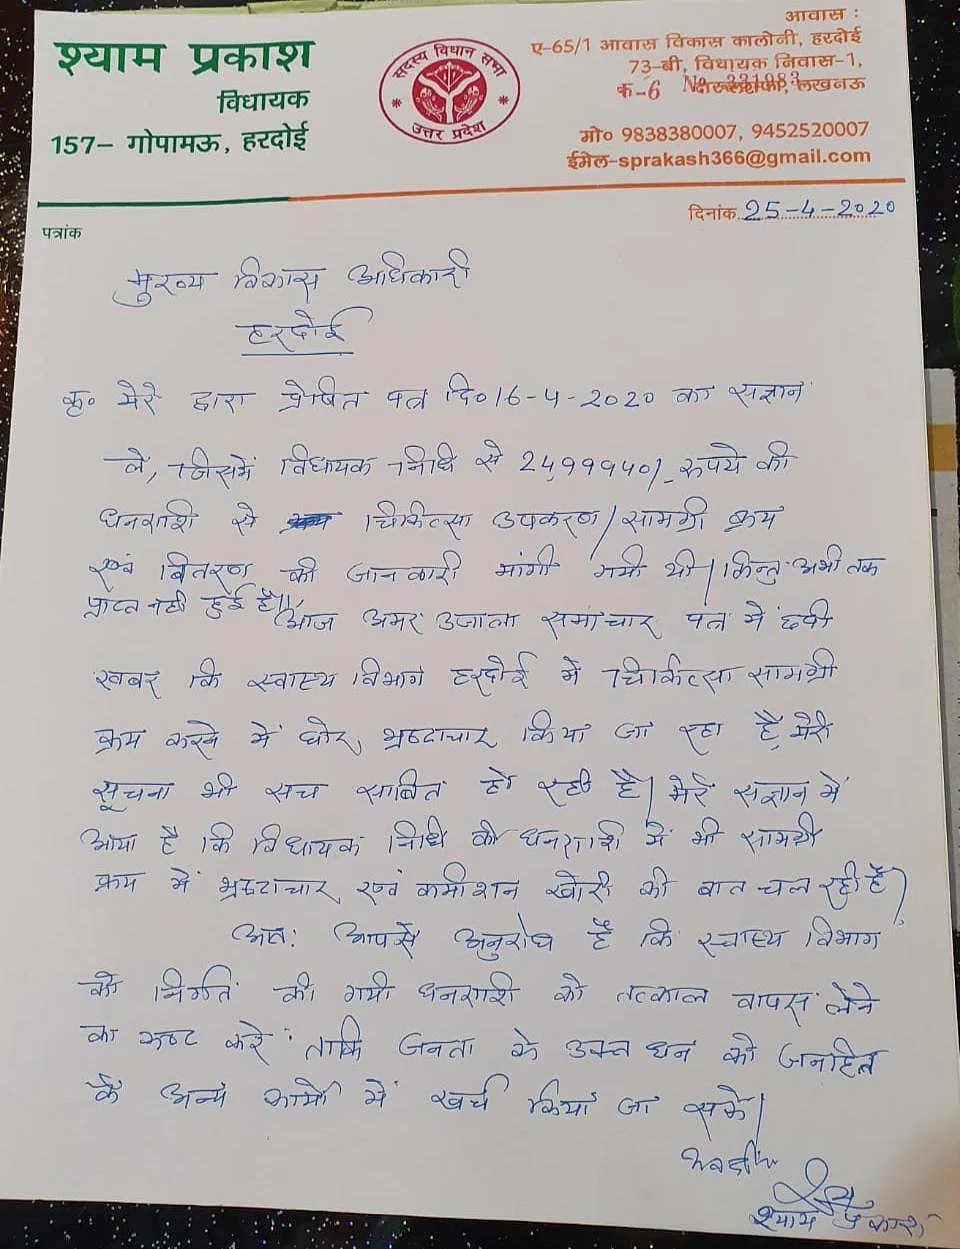 श्याम प्रकाश
विधायक
157– गोपामऊ, हरदोई
सदस्य विधान सभा
उत्तर प्रदेश
आवास :
ए-65/1 आवास विकास कालोनी, हरदोई
73-बी, विधायक निवास-1,
क-6 लखनऊ
मो० 9838380007, 9452520007
ईमेल-sprakash366@gmail.com
दिनांक 25-4-2020
पत्रांक
मुख्य विकास अधिकारी
हरदोई
कृ० मेरे द्वारा प्रेषित पत्र दि० 16-4-2020 का संज्ञान
लें, जिसमें विधायक निधि से 24,99940/- रुपये की
धनराशि से चिकित्सा उपकरण/सामग्री क्रय
एवं वितरण की जानकारी मांगी गयी थी। किन्तु अभी तक
प्राप्त नही हुई है।
आज अमर उजाला समाचार पत्र में छपी
खबर कि स्वास्थ्य विभाग हरदोई में चिकित्सा सामग्री
क्रय करने में घोर भ्रष्टाचार किया जा रहा है, मेरी
सूचना भी सच साबित हो रही है। मेरे संज्ञान में
आया है कि विधायक निधि की धनराशि में भी सामग्री
क्रय में भ्रष्टाचार एवं कमीशन खोरी की बात चल रही है।
अतः आपसे अनुरोध है कि स्वास्थ्य विभाग
को निर्गत की गयी धनराशि को तत्काल वापस लेने
का कष्ट करें ताकि जनता के उक्त धन को जनहित
के अन्य कामों में खर्च किया जा सके।
भवदीय
श्याम प्रकाश